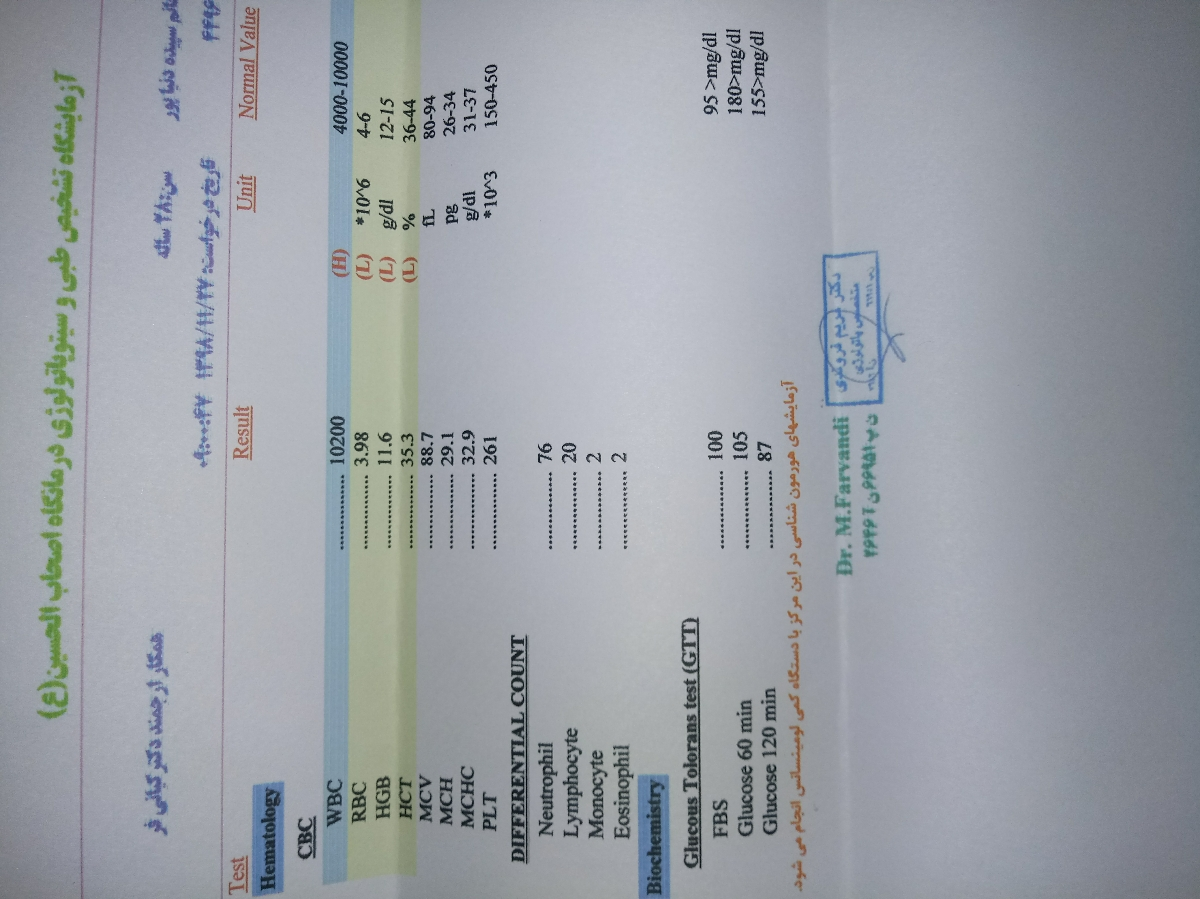 آزمایشگاه تشخیص طبی و سیتوپاتولوژی درمانگاه اصحاب الحسین(ع)
خانم سپیده دنیا پور سن: ۲۸ ساله همکار ارجمند دکتر کیانی فر
تاریخ درخواست: ۱۳۹۸/۱۱/۲۷ ۰۹:۰۰:۴۷
Test Result Unit Normal Value
Hematology
CBC
WBC ............... 10200 (H) 4000-10000
RBC ............... 3.98 (L) *10^6 4-6
HGB ............... 11.6 (L) g/dl 12-15
HCT ............... 35.3 (L) % 36-44
MCV ............... 88.7 fL 80-94
MCH ............... 29.1 pg 26-34
MCHC ............... 32.9 g/dl 31-37
PLT ............... 261 *10^3 150-450
DIFFERENTIAL COUNT
Neutrophil ............... 76
Lymphocyte ............... 20
Monocyte ............... 2
Eosinophil ............... 2
Biochemistry
Glucous Tolorans test (GTT)
FBS ............... 100 95 >mg/dl
Glucose 60 min ............... 105 180>mg/dl
Glucose 120 min ............... 87 155>mg/dl
آزمایشهای هورمون شناسی در این مرکز با دستگاه کمی لومینسانس انجام می شود.
Dr. M.Farvandi
دکتر مریم فروندی
متخصص پاتولوژی